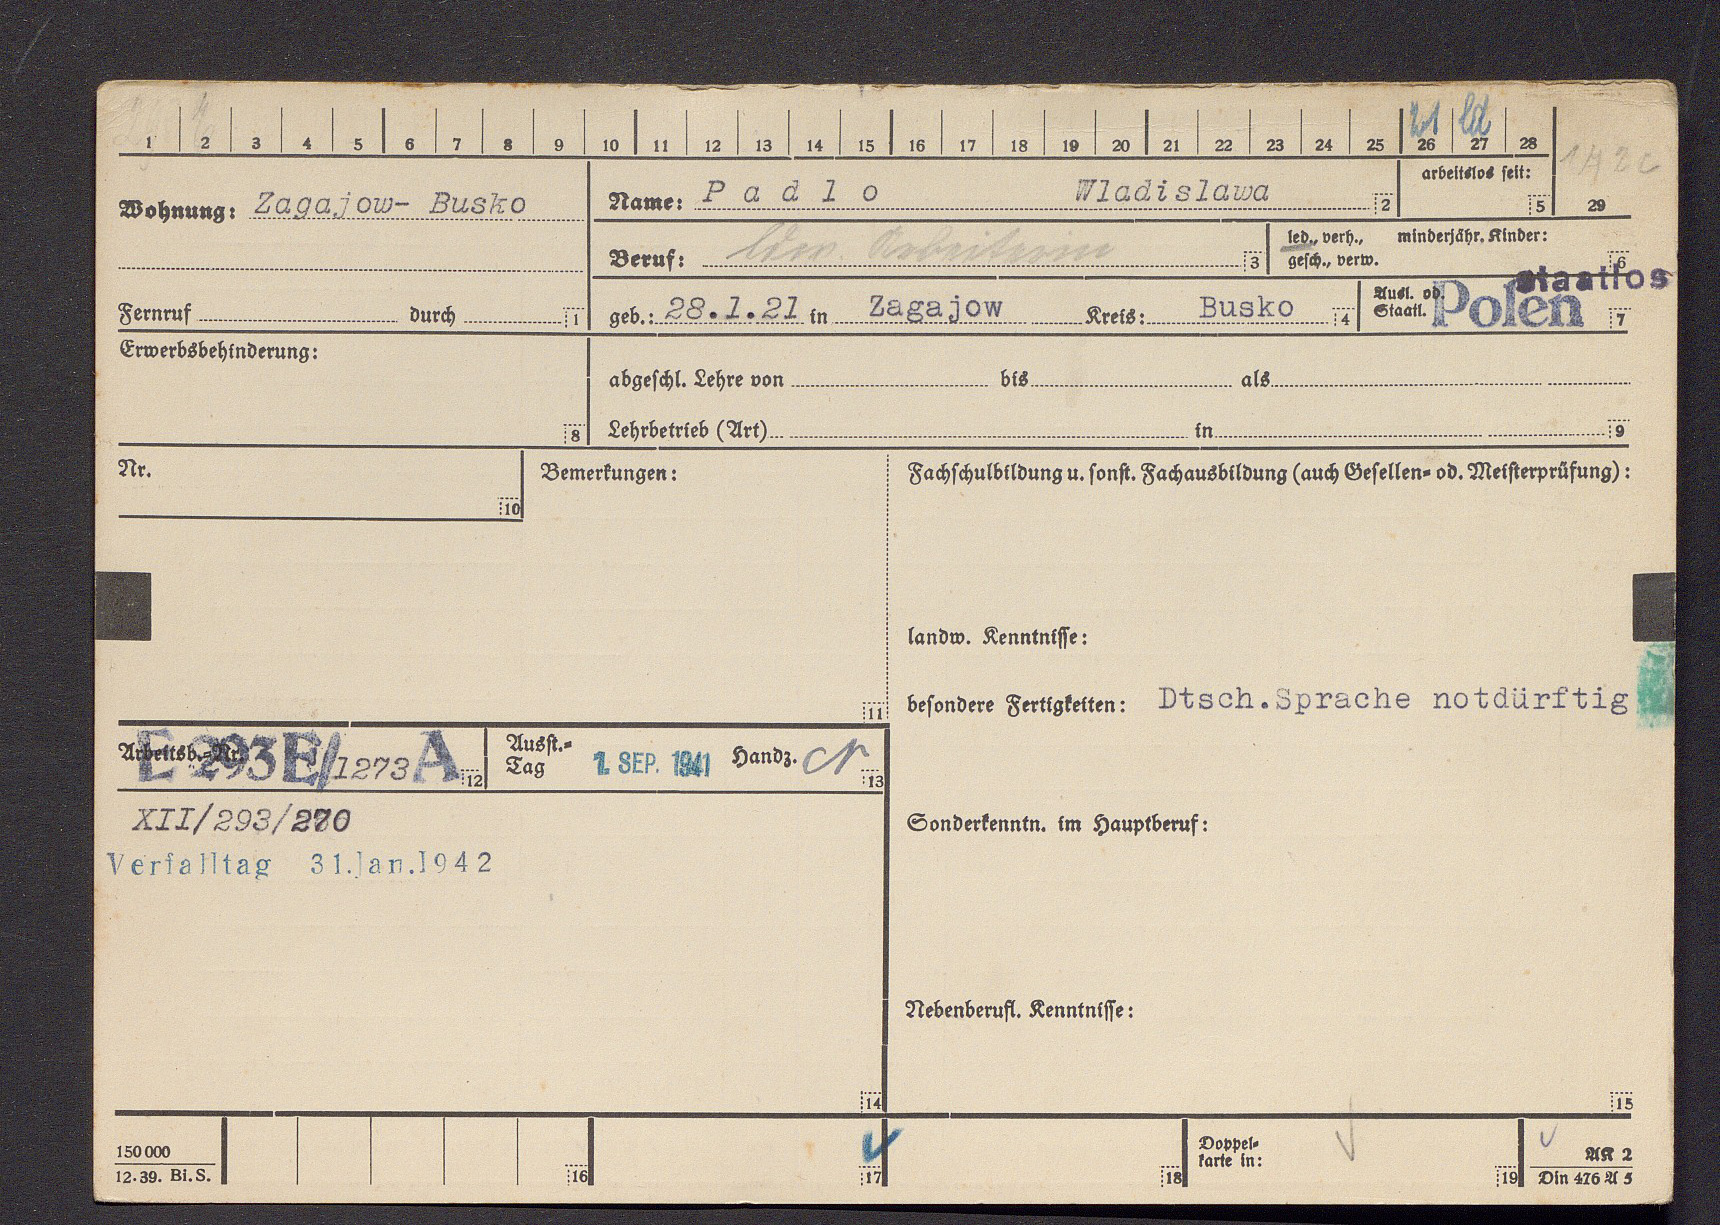 1 2 3 4 5 6 7 8 9 10 11 12 13 14 15 16 17 18 19 20 21 22 23 24 25 26 27 28
21 ld
arbeitslos seit:
5
29
Wohnung: Zagajow- Busko
Name: Padlo Wladislawa
2
Beruf: ldw. Arbeiterin
3
led., verh.,
gesch., verw.
minderjähr. Kinder:
6
Fernruf durch
1
geb.: 28.1.21 in Zagajow Kreis: Busko
4
Ausl. od.
Staatl.
Polen
staatlos
7
Erwerbsbehinderung:
8
abgeschl. Lehre von bis als
Lehrbetrieb (Art) in
9
Nr.
10
Bemerkungen:
11
Fachschulbildung u. sonst. Fachausbildung (auch Gesellen- od. Meisterprüfung):
landw. Kenntnisse:
besondere Fertigkeiten: Dtsch.Sprache notdürftig
Arbeitsb.-Nr.
E 293E/1273 A
12
Ausst.-
Tag
1. SEP. 1941
Handz.
13
XII/293/270
Verfalltag 31.Jan.1942
Sonderkenntn. im Hauptberuf:
Nebenberufl. Kenntnisse:
14
15
150 000
12. 39. Bi. S.
16
17
18
Doppel-
karte in:
19
AK 2
Din 476 A 5